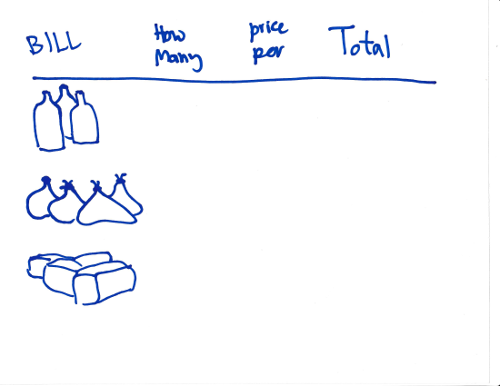 BILL How Many price per Total